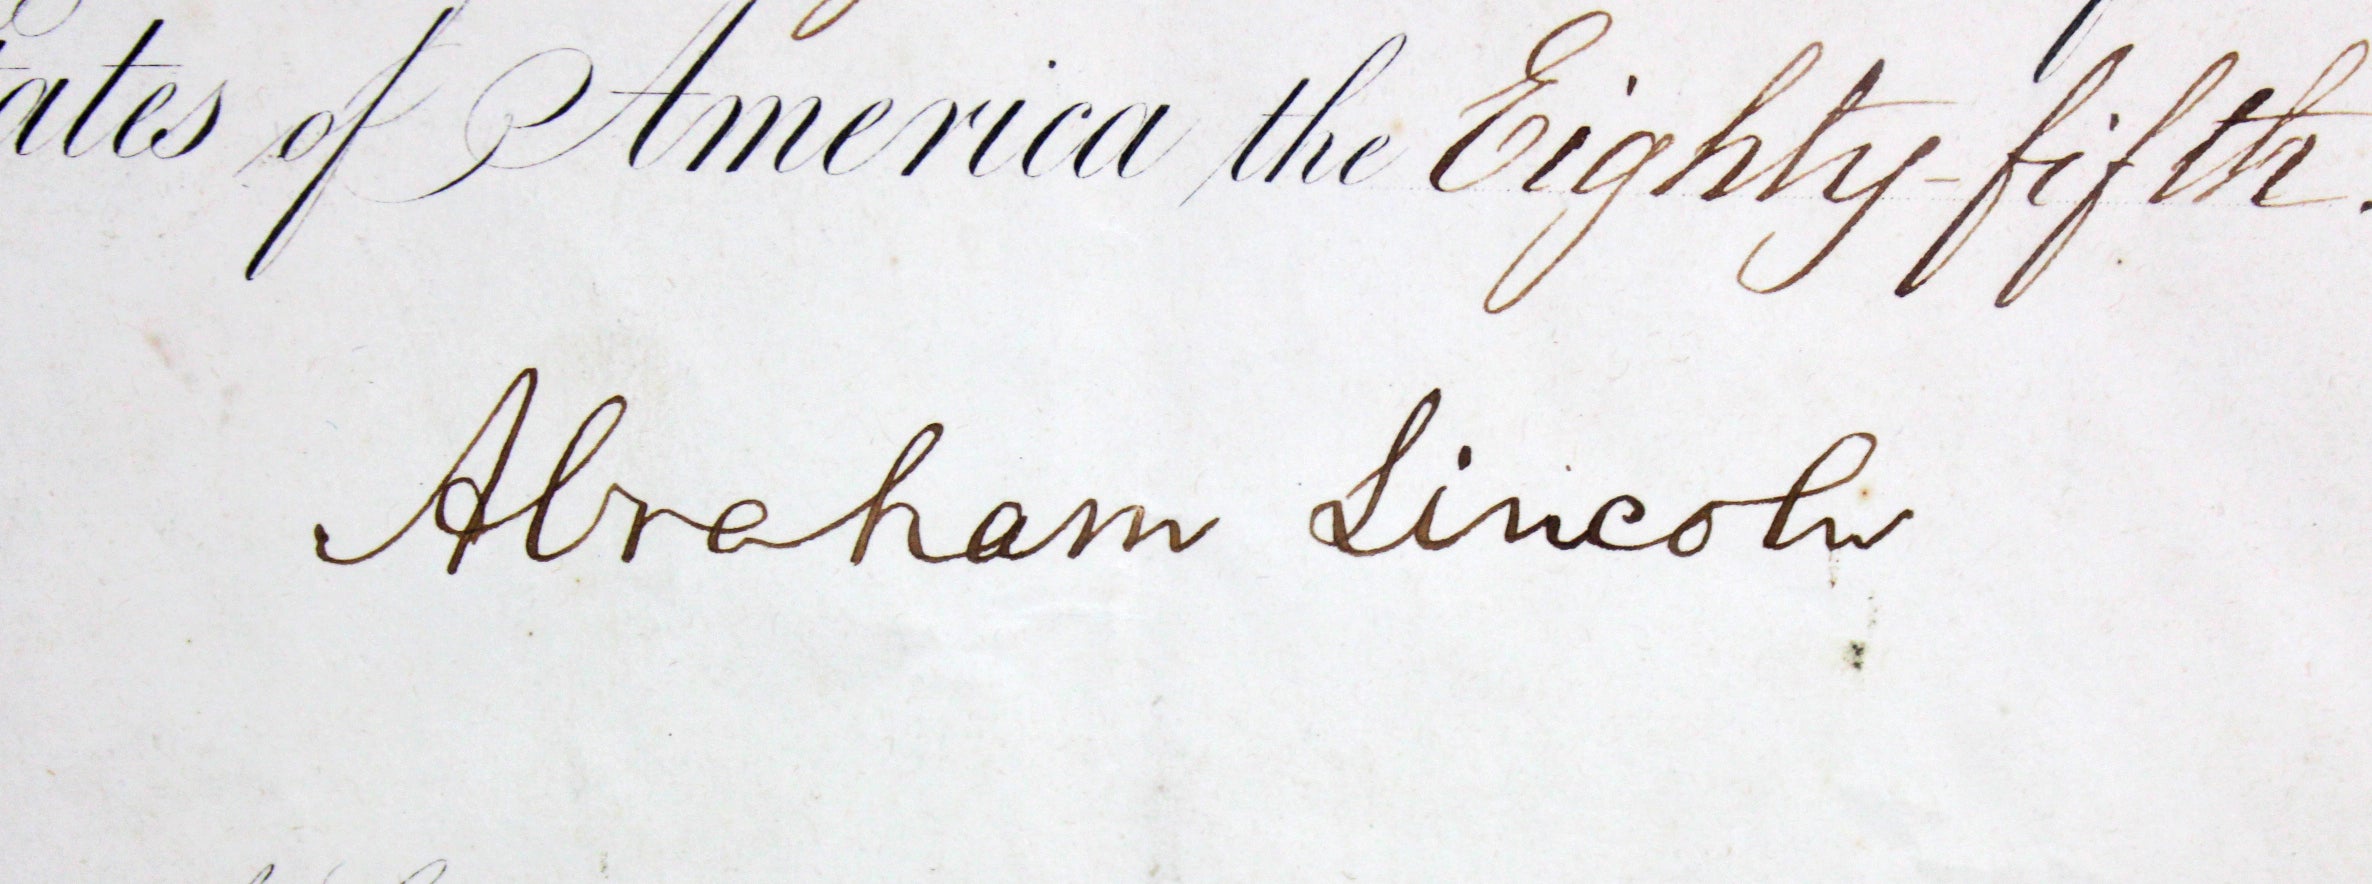 tates of America the Eighty-fifth.
Abraham Lincoln